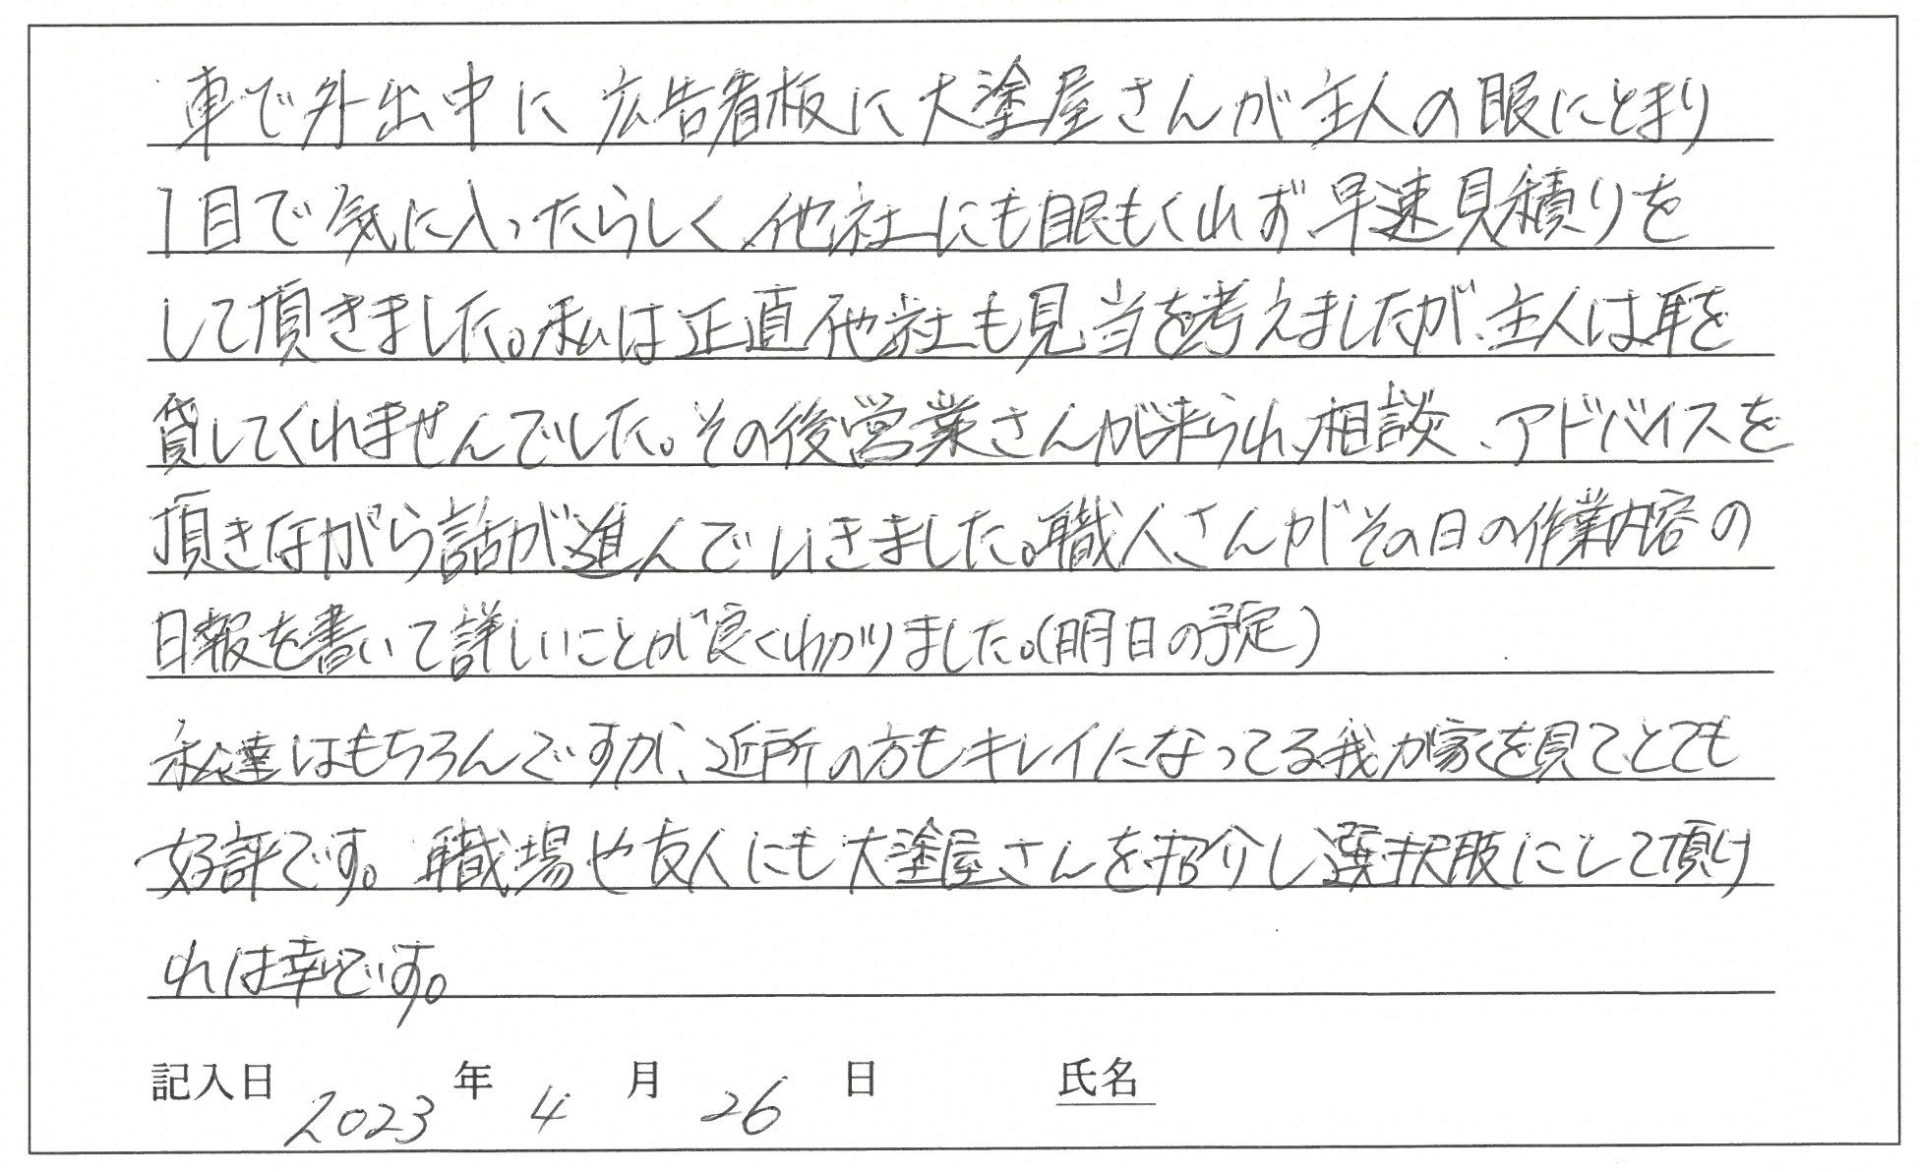 車で外出中に広告看板に大塗屋さんが主人の眼にとまり
1目で気に入ったらしく、他社にも眼もくれず、早速見積りを
して頂きました。私は正直他社も見当を考えましたが、主人は耳を
貸してくれませんでした。その後営業さんが来られ、相談、アドバイスを
頂きながら話が進んでいきました。職人さんがその日の作業内容の
日報を書いて詳しいことが良くわかりました。(明日の予定)
私達はもちろんですが、近所の方もキレイになってる我が家を見てとても
好評です。職場や友人にも大塗屋さんを紹介し選択肢にして頂け
れは幸です。
記入日 2023 年 4 月 26 日 氏名